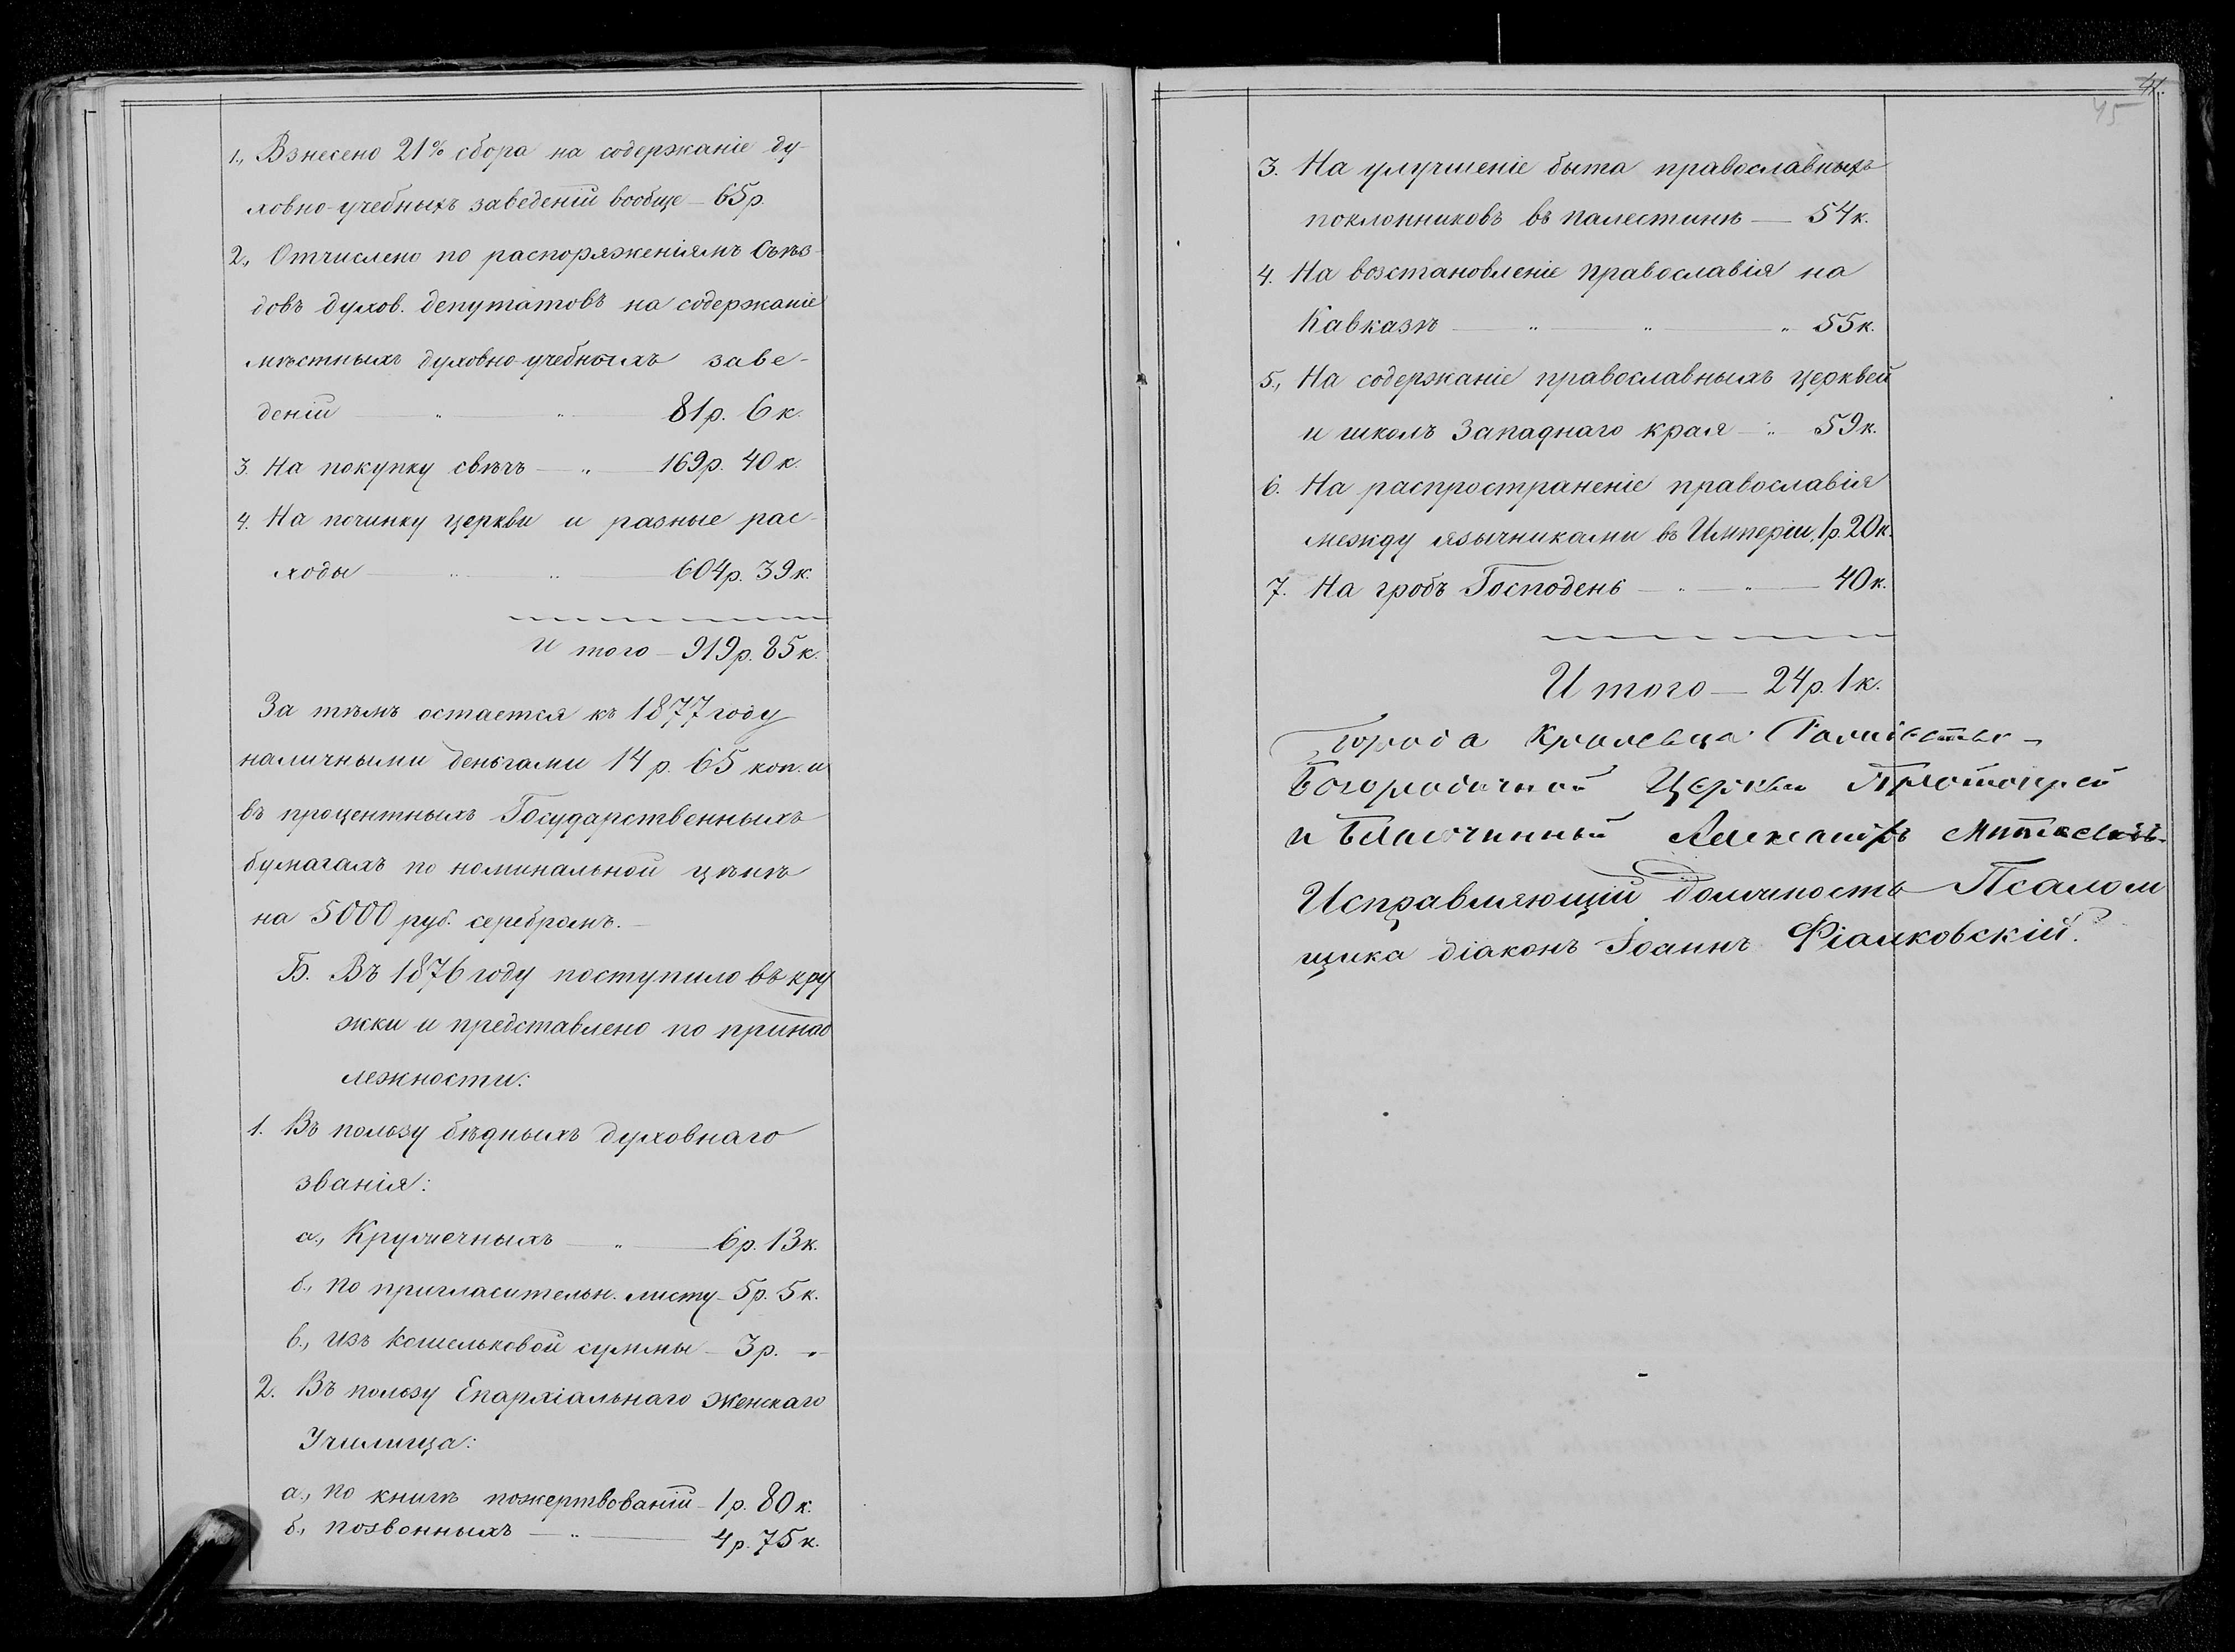 1., Взнесено 21% сбора на содержаніе ду-
ховно-учебныхъ заведеній вообще — 65р.
2., Отчислено по распоряженіямъ Съѣз-
довъ духов. депутатовъ на содержаніе
мѣстныхъ духовно-учебныхъ заве-
деній — „ — „ — 81р. 6к.
3. На покупку свѣчъ — „ — 169р. 40к.
4. На починку церкви и разные рас-
ходы — „ — „ — 604р. 39к.
И того — 919р. 85к.
За тѣмъ остается къ 1877 году
наличными деньгами 14 р. 65 коп. и
въ процентныхъ Государственныхъ
бумагахъ по номинальной цѣнѣ
на 5000 руб. серебромъ. —
Б. Въ 1876 году поступило въ кру
жки и представлено по принад
лежности:
1. Въ пользу бѣдныхъ духовнаго
званія:
а., Кружечныхъ — „ — 6р. 13к.
б., по пригласительн. листу — 5р. 5к.
в., изъ кошельковой суммы — 3р. „
2. Въ пользу Епархіальнаго Женскаго
Училища:
а., по книгѣ пожертвованій — 1р. 80к.
б., позвонныхъ — „ — 4р. 75к.
41.
45
3. На улучшеніе быта православныхъ
поклонниковъ въ палестинѣ — 54к.
4. На возстановленіе православія на
Кавказѣ — „ — „ — „ 55к.
5., На содержаніе православныхъ церквей
и школъ Западнаго края — „ 59к.
6. На распространеніе православія
между язычниками въ Имперіи, 1р. 20к.
7. На гробъ Господень — „ — „ — 40к.
И того — 24р. 1к.
Города Кролевца
Богородичной Церкви Протоіерей
и Благочинный Александръ
Исправляющій должность Псалом
щика діаконъ Іоаннъ Фіалковскій.